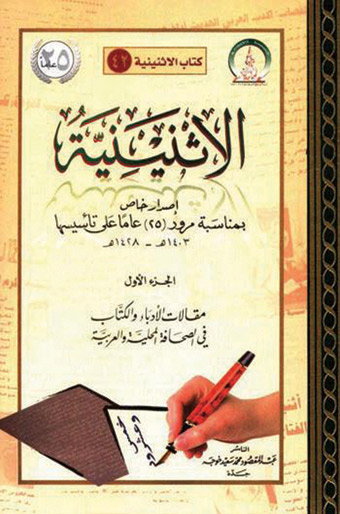 كتاب الاثنينية ٤٢
٢٥ عاماً
الاثنينيّة
إصدار خاص
بمناسبة مرور (٢٥) عامًا على تأسيسها
١٤٠٣هـ - ١٤٢٨هـ
الجزء الأول
مقالات الأدباء والكتّاب
في الصحافة المحلية والعربية
خمس
وعشرون
الناشر
عبد المقصود محمد سعيد خوجه
جدة